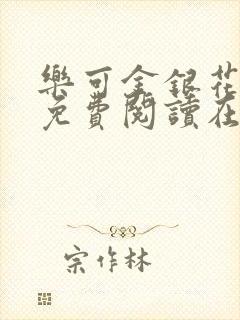 樂可金銀花
免費閱讀在
宗作林